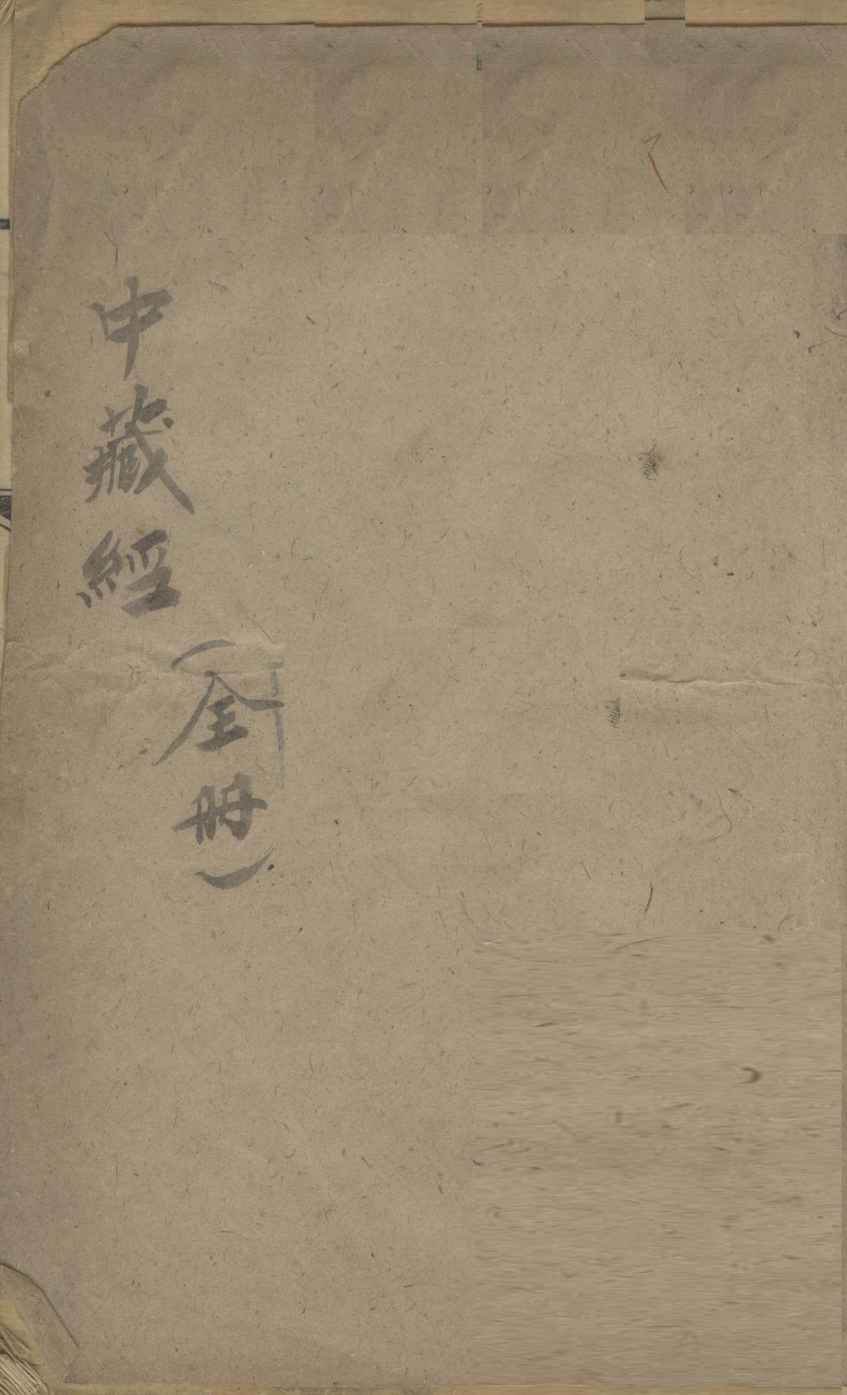 中藏經
(全册)